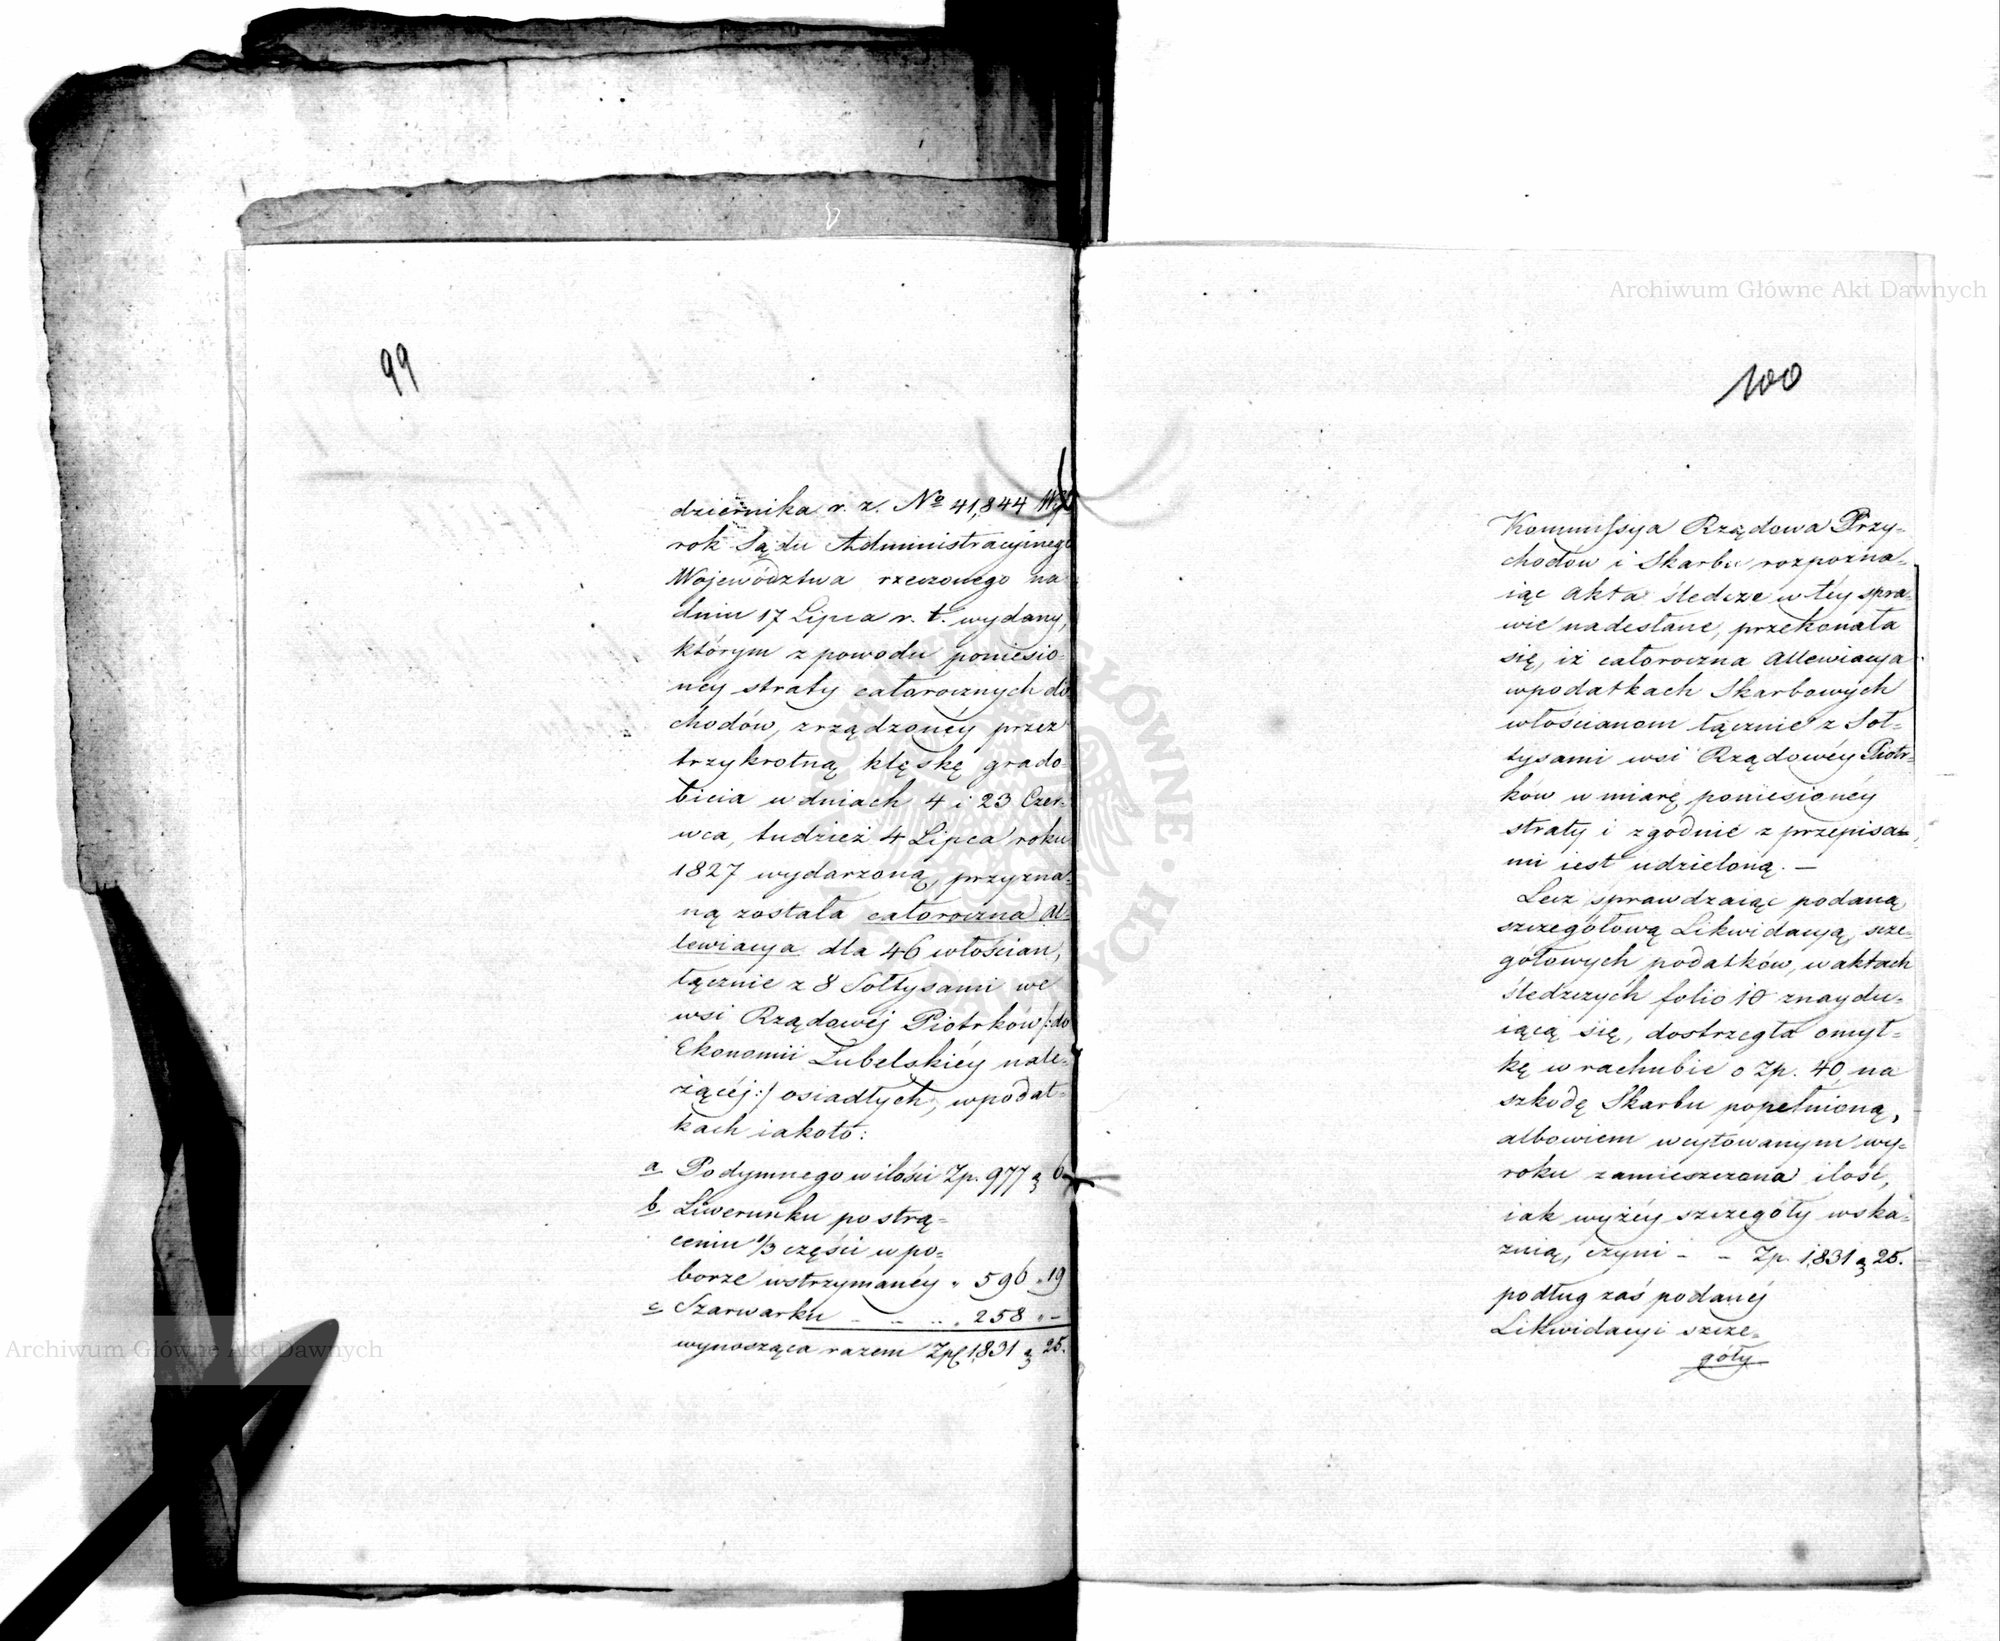 99
dziernika r. z. No 41,844 Wy
rok Sądu Administracyinego
Województwa rzeczonego na
dniu 17 Lipca r. t. wydany,
którym z powodu poniesio-
néy straty całorocznych do
chodów, zrządzonéy przez
trzykrotną klęskę grado
bicia w dniach 4 i 23 Czer-
wca, tudzież 4 Lipca roku
1827 wydarzoną, przyzna-
ną została całoroczna Al-
lewiacya dla 46 włościan,
łącznie z 8 Sołtysami we
wsi Rządowéj Piotrków /:do
Ekonomii Lubelskiéy nale-
żącéj:/ osiadłych, w podat-
kach iakoto:
a Podymnego w ilości Zp. 977 g 6
b Liwerunku po strą-
ceniu 1/3 części w po-
borze wstrzymanéy „ 596 „ 19
c Szarwarku - - - „ 258 „ -
wynosząca razem Zpl 1831 g 25.
100
Kommissya Rządowa Przy-
chodów i Skarbu rozpozna-
iąc akta śledcze w téy spra-
wie nadesłane, przekonała
się, iż całoroczna Allewiacya
w podatkach Skarbowych
włościanom łącznie z Soł-
tysami wsi Rządowéy Piotr-
ków w miarę poniesionéy
straty i zgodnie z przepisa-
mi iest udzieloną. —
Lecz sprawdzaiąc podaną
szczegółową Likwidacyą, szcze-
gółowych podatków, w aktach
śledczych folio 10 znaydu-
iącą się, dostrzegła omył-
kę w rachubie o Zp. 40, na
szkodę Skarbu popełnioną,
albowiem w cytowanym wy-
roku zamieszczona ilość,
iak wyżéy szczegóły wska-
znią, czyni - - Zp. 1,831 g 25.
podług zaś podanéj
Likwidacyi szcze-
góły
Archiwum Główne Akt Dawnych
Archiwum Główne Akt Dawnych